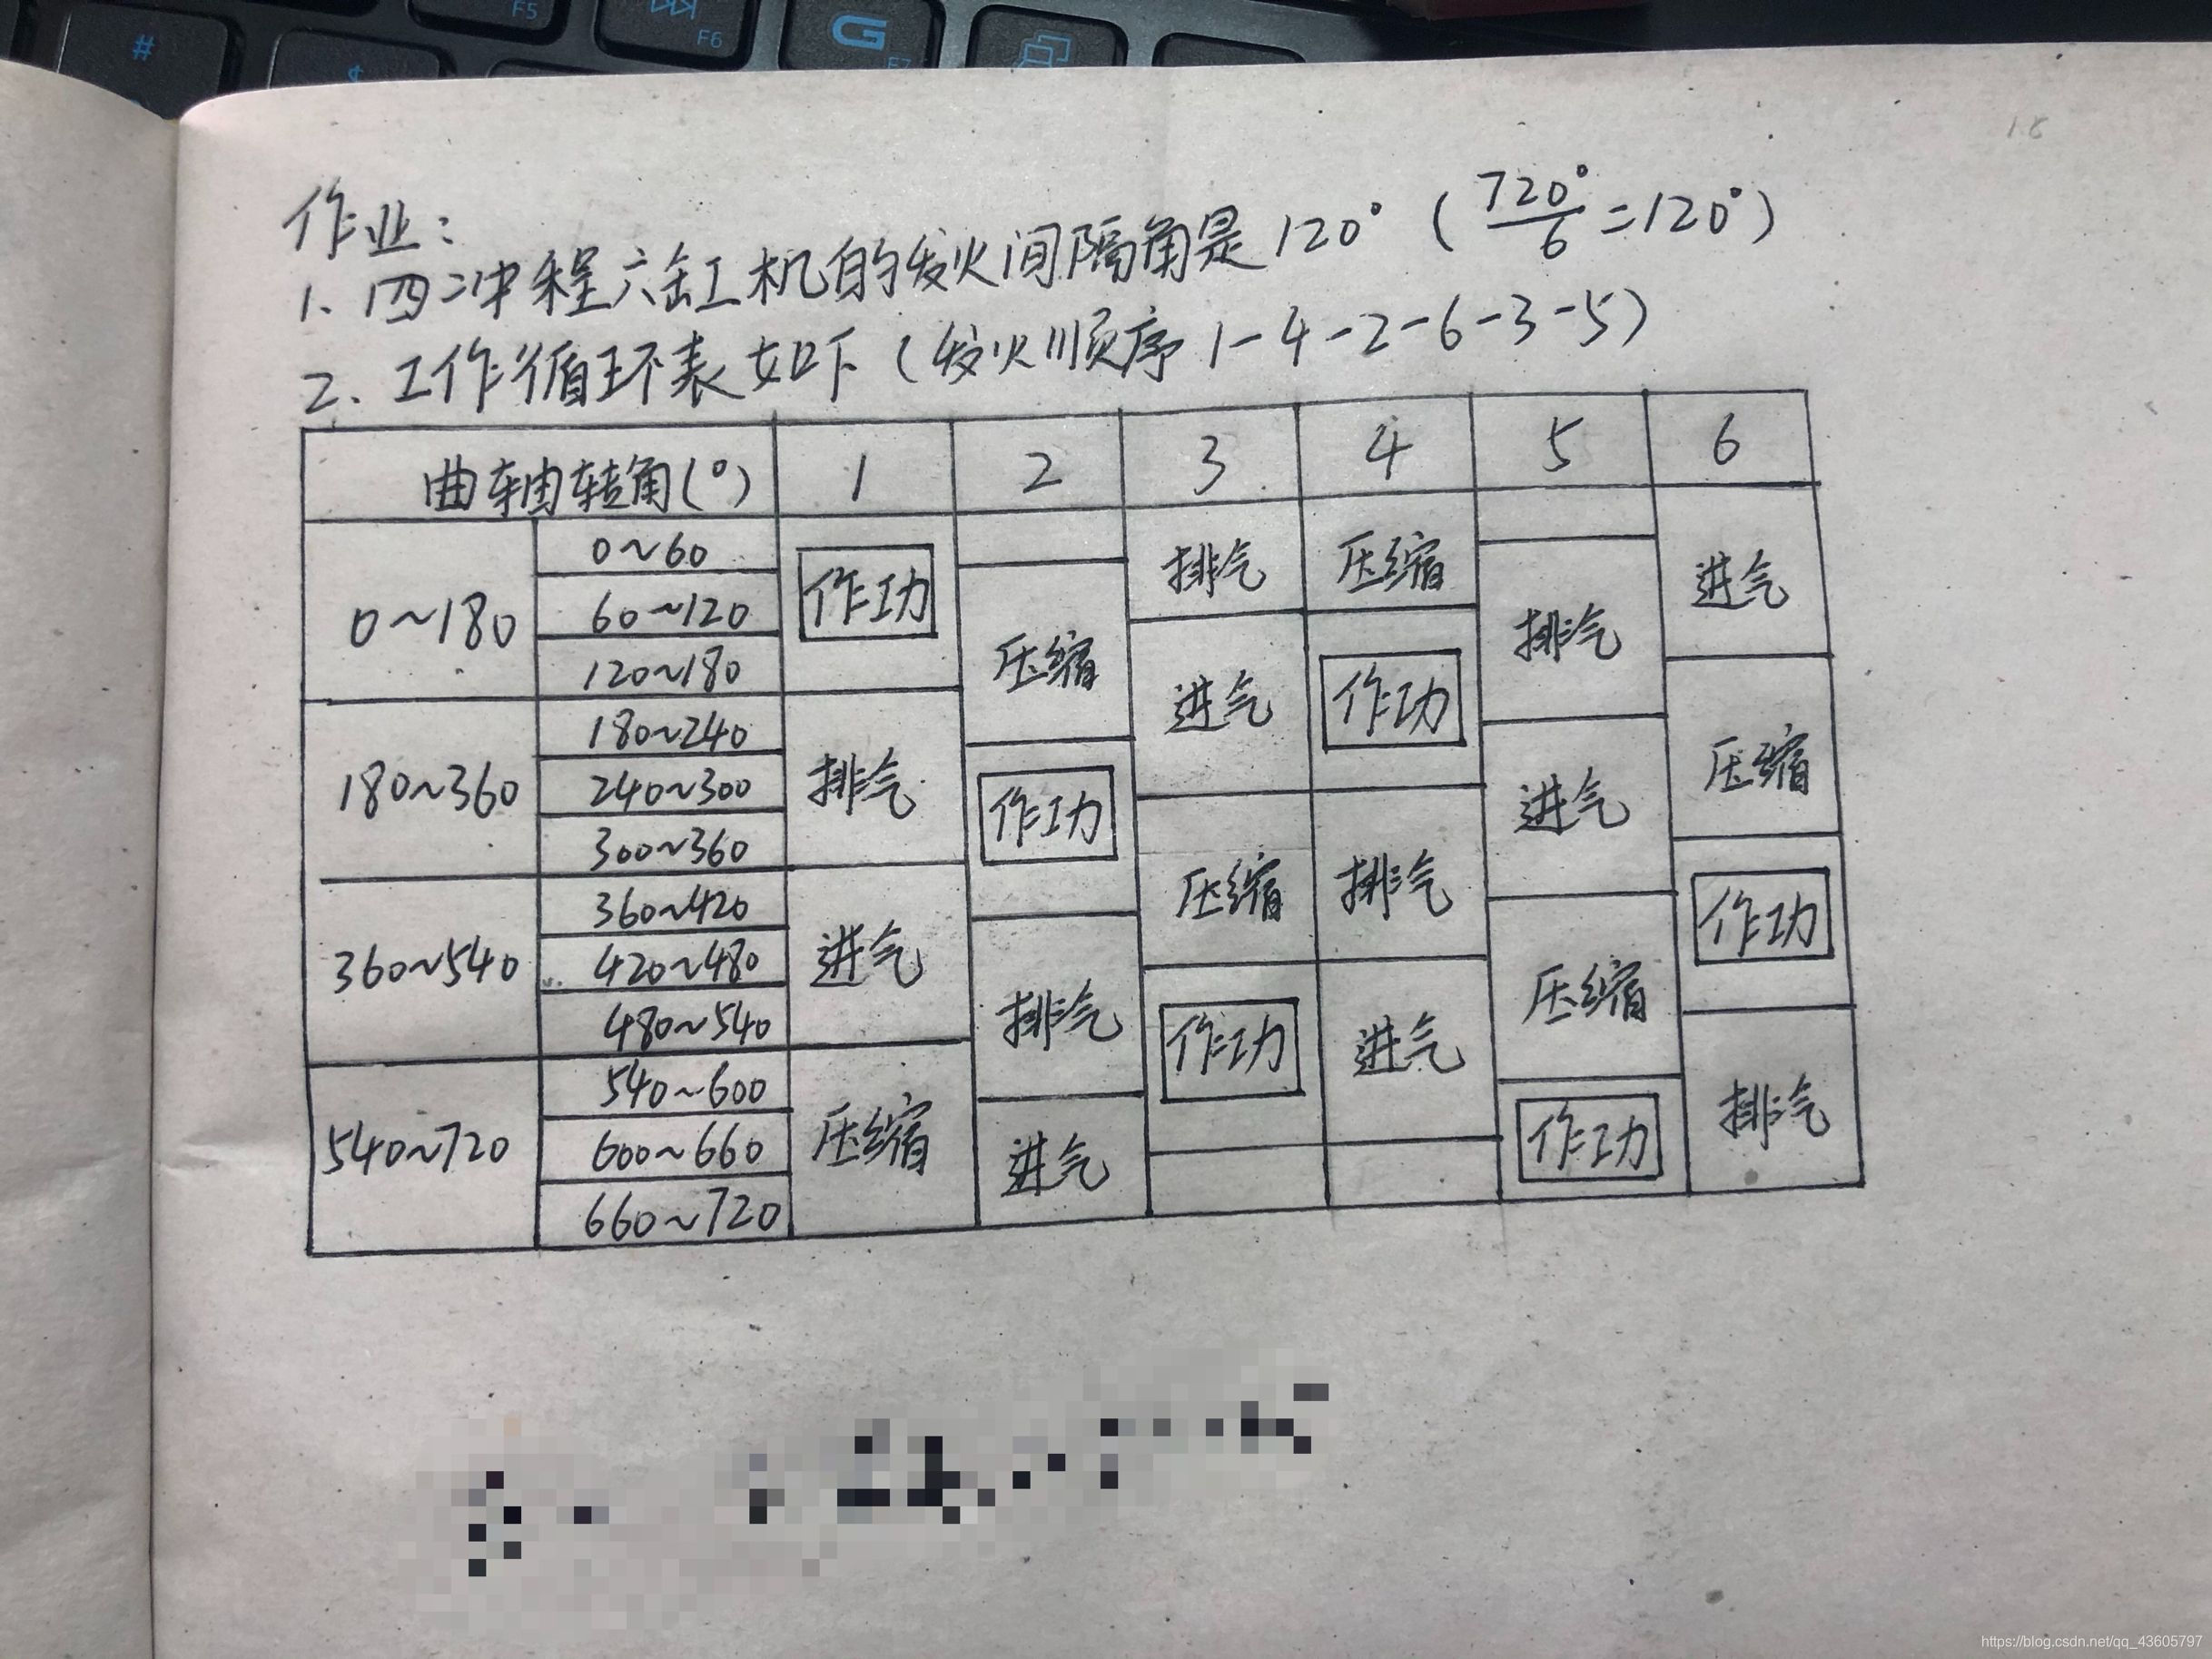 #
$
F5
F6
G
F7
18
作业:
1、四冲程六缸机的发火间隔角是120°(720°/6=120°)
2、工作循环表如下(发火顺序1-4-2-6-3-5)
曲轴转角(°) 1 2 3 4 5 6
0~180 0~60 作功 排气 压缩 进气
60~120 压缩 排气
120~180 进气 作功
180~360 180~240 排气 进气 压缩
240~300 作功
300~360 压缩 排气
360~540 360~420 进气 作功
420~480 排气 压缩
480~540 作功 进气
540~720 540~600 压缩 排气
600~660 进气 作功
660~720
https://blog.csdn.net/qq_43605797